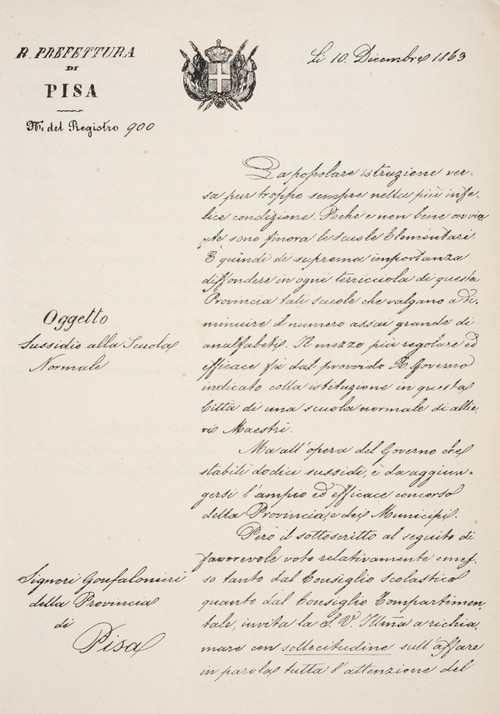 R. PREFETTURA
DI
PISA
N. del Registro 900
Li 10. Dicembre 1863
La popolare istruzione ver-
sa pur troppo sempre nella più infe-
lice condizione. Poche e non bene avvia-
te sono finora le scuole Elementari.
È quindi di suprema importanza
diffondere in ogni terricciola di questa
Provincia tali scuole che valgano a di-
minuire il numero assai grande di
analfabeti. Il mezzo più regolare ed
efficace fu dal provvido R. Governo
indicato colla istituzione in questa
Città di una scuola normale di allie-
vi Maestri.
Ma all'opera del Governo che
stabilì dodici sussidi, è da aggiun-
gersi l'ampio ed efficace concorso
della Provincia, e dei Municipi.
Però il sottoscritto al seguito di
favorevole voto relativamente emes-
so tanto dal Consiglio scolastico
quanto dal Consiglio Compartimen-
tale, invita la S. V. Illma a richia-
mare con sollecitudine sull'affare
in parola tutta l'attenzione del
Oggetto
Sussidio alla Scuola
Normale
Signori Gonfalonieri
della Provincia
di
Pisa